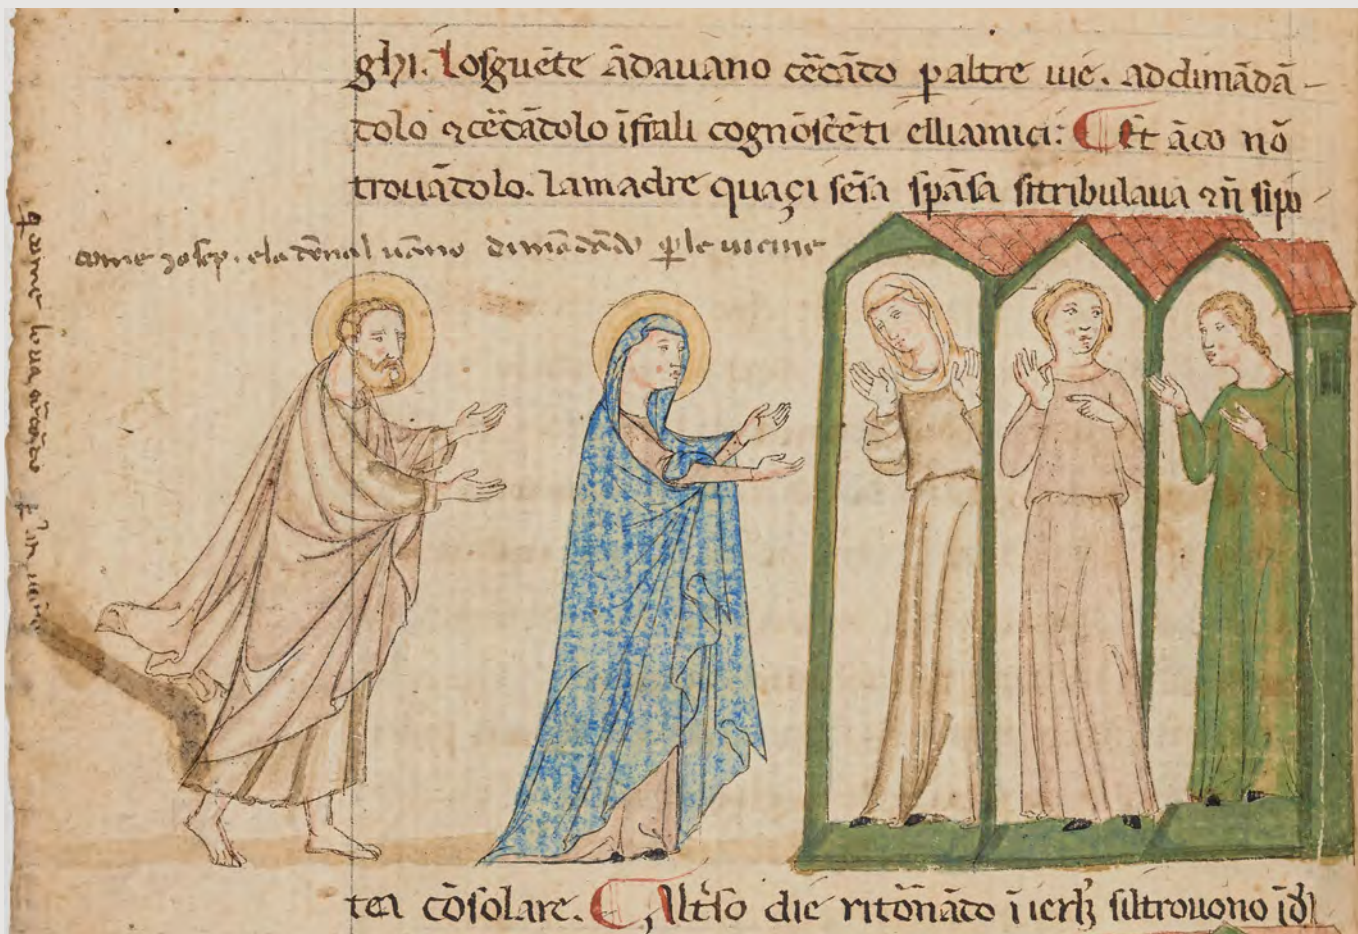 ghi. Losguēte ādavano c̄ecādo p altre uie. addimādā-
dolo ⁊ c̄ecādolo īfrali cognōsc̄eti elliamici: ¶ Et āco nō
trovādolo. lamadre quaçi sēsa spāsa sitribulaua ⁊ n̄ sipo-
come Josep. ela dōna luāno dimādādo p le uicine
tea cōsolare. ¶ Altso die ritōnādo ī ierlȝ siltrouono